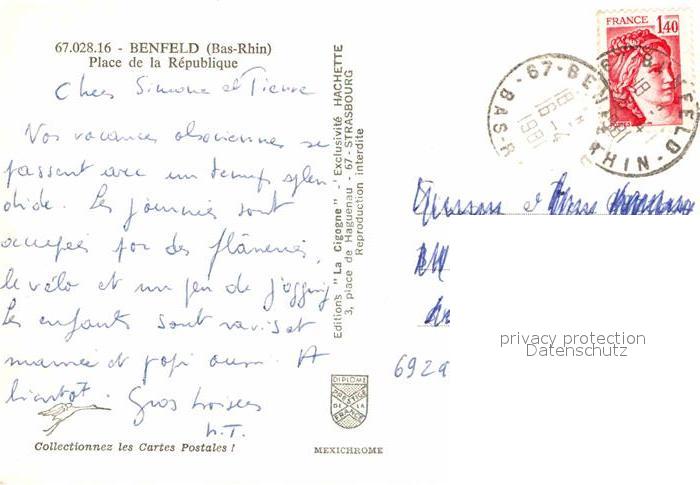 67.028.16 - BENFELD (Bas-Rhin)
Place de la République
Chers Simone et Pierre
Vos vacances alsaciennes se
passent avec un temps splen-
dide. Les journées sont
occupées par des flâneries,
le vélo et un peu de jogging
Les enfants sont ravis et
mamie et papi aussi. A
bientôt. Gros baisers
Collectionnez les Cartes Postales !
Editions "La Cigogne" - Exclusivité HACHETTE
3, place de Haguenau - 67 - STRASBOURG
Reproduction interdite
DIPLOME
PRESTIGE
DE LA
FRANCE
MEXICHROME
FRANCE
1,40
67-BENFELD
BAS-RHIN
1981
privacy protection
Datenschutz